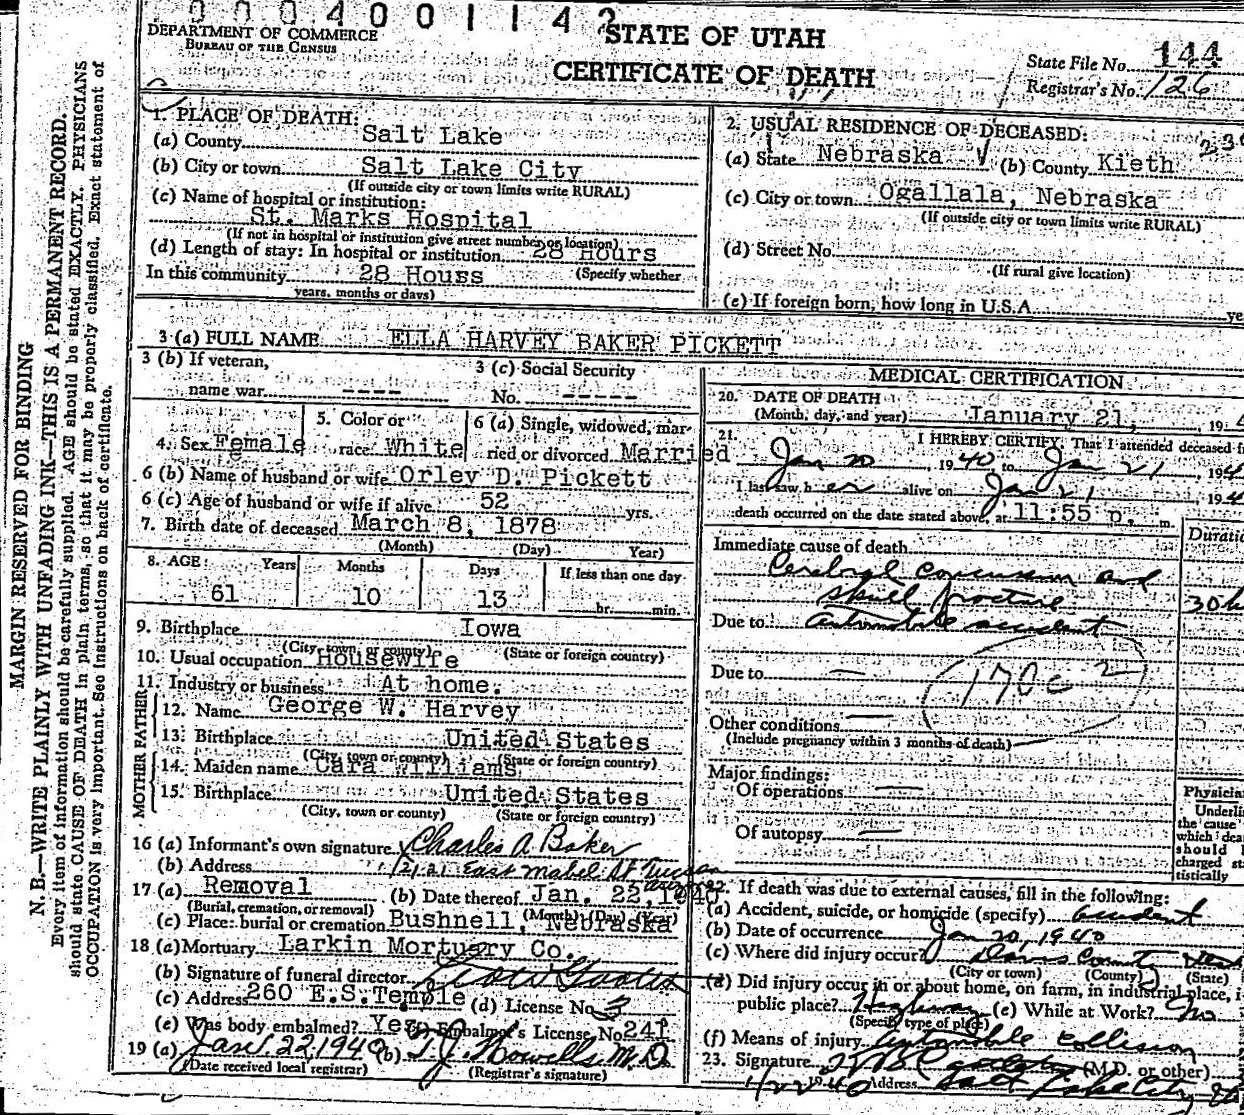 0004001142
DEPARTMENT OF COMMERCE
BUREAU OF THE CENSUS
STATE OF UTAH
CERTIFICATE OF DEATH
State File No. 144
Registrar's No. 126
MARGIN RESERVED FOR BINDING
N. B.—WRITE PLAINLY WITH UNFADING INK—THIS IS A PERMANENT RECORD.
Every item of information should be carefully supplied. AGE should be stated EXACTLY. PHYSICIANS
should state CAUSE OF DEATH in plain terms, so that it may be properly classified. Exact statement of
OCCUPATION is very important. See instructions on back of certificate.
1. PLACE OF DEATH:
(a) County Salt Lake
(b) City or town Salt Lake City
(If outside city or town limits write RURAL)
(c) Name of hospital or institution:
St. Marks Hospital
(If not in hospital or institution give street number or location)
(d) Length of stay: In hospital or institution 28 Hours
In this community 28 Houss (Specify whether
years, months or days)
2. USUAL RESIDENCE OF DECEASED:
(a) State Nebraska (b) County Kieth
(c) City or town Ogallala, Nebraska
(If outside city or town limits write RURAL)
(d) Street No.
(If rural give location)
(e) If foreign born, how long in U.S.A. ye
3 (a) FULL NAME ELLA HARVEY BAKER PICKETT
3 (b) If veteran,
name war ----
3 (c) Social Security
No. -----
4. Sex Female
5. Color or
race White
6 (a) Single, widowed, mar-
ried or divorced Married
6 (b) Name of husband or wife Orley D. Pickett
6 (c) Age of husband or wife if alive 52 yrs.
7. Birth date of deceased March 8, 1878
(Month) (Day) Year)
8. AGE: Years Months Days If less than one day
61 10 13 hr. min.
9. Birthplace Iowa
(City, town, or county) (State or foreign country)
10. Usual occupation Housewife
11. Industry or business At home.
FATHER
12. Name George W. Harvey
13. Birthplace United States
(City, town or county) (State or foreign country)
MOTHER
14. Maiden name Cara Williams
15. Birthplace United States
(City, town or county) (State or foreign country)
16 (a) Informant's own signature Charles A. Baker
(b) Address East Mabel St Tucson
17 (a) Removal (b) Date thereof Jan. 22, 1940
(Burial, cremation, or removal) (Month) (Day) (Year)
(c) Place: burial or cremation Bushnell, Nebraska
18 (a) Mortuary Larkin Mortuary Co.
(b) Signature of funeral director
(c) Address 260 E.S.Temple (d) License No. 3
(e) Was body embalmed? Yes (f) Embalmer's License No. 241
19 (a) Jan. 22, 1940 (b) T. J. Howells M.D
(Date received local registrar) (Registrar's signature)
MEDICAL CERTIFICATION
20. DATE OF DEATH
(Month, day, and year) January 21, 19 4
21. I HEREBY CERTIFY, That I attended deceased fr
Jan 20, 1940 to Jan 21, 194
I last saw her alive on Jan 21, 194
death occurred on the date stated above, at 11:55 p. m.
Immediate cause of death
Duratio
Cerebral concussion and
skull fracture 30h
Due to Automobile accident
Due to —
170c 2
Other conditions —
(Include pregnancy within 3 months of death)
Major findings:
Of operations —
Of autopsy —
Physicia
Underli
the cause
which dea
should
charged st
tistically
22. If death was due to external causes, fill in the following:
(a) Accident, suicide, or homicide (specify) Accident
(b) Date of occurrence Jan 20, 1940
(c) Where did injury occur? Davis County Utah
(City or town) (County) (State)
(d) Did injury occur in or about home, on farm, in industrial place, i
public place? Highway (e) While at Work? No
(Specify type of place)
(f) Means of injury Automobile Collision
23. Signature (M.D. or other)
1/22 1940 Address Salt Lake City